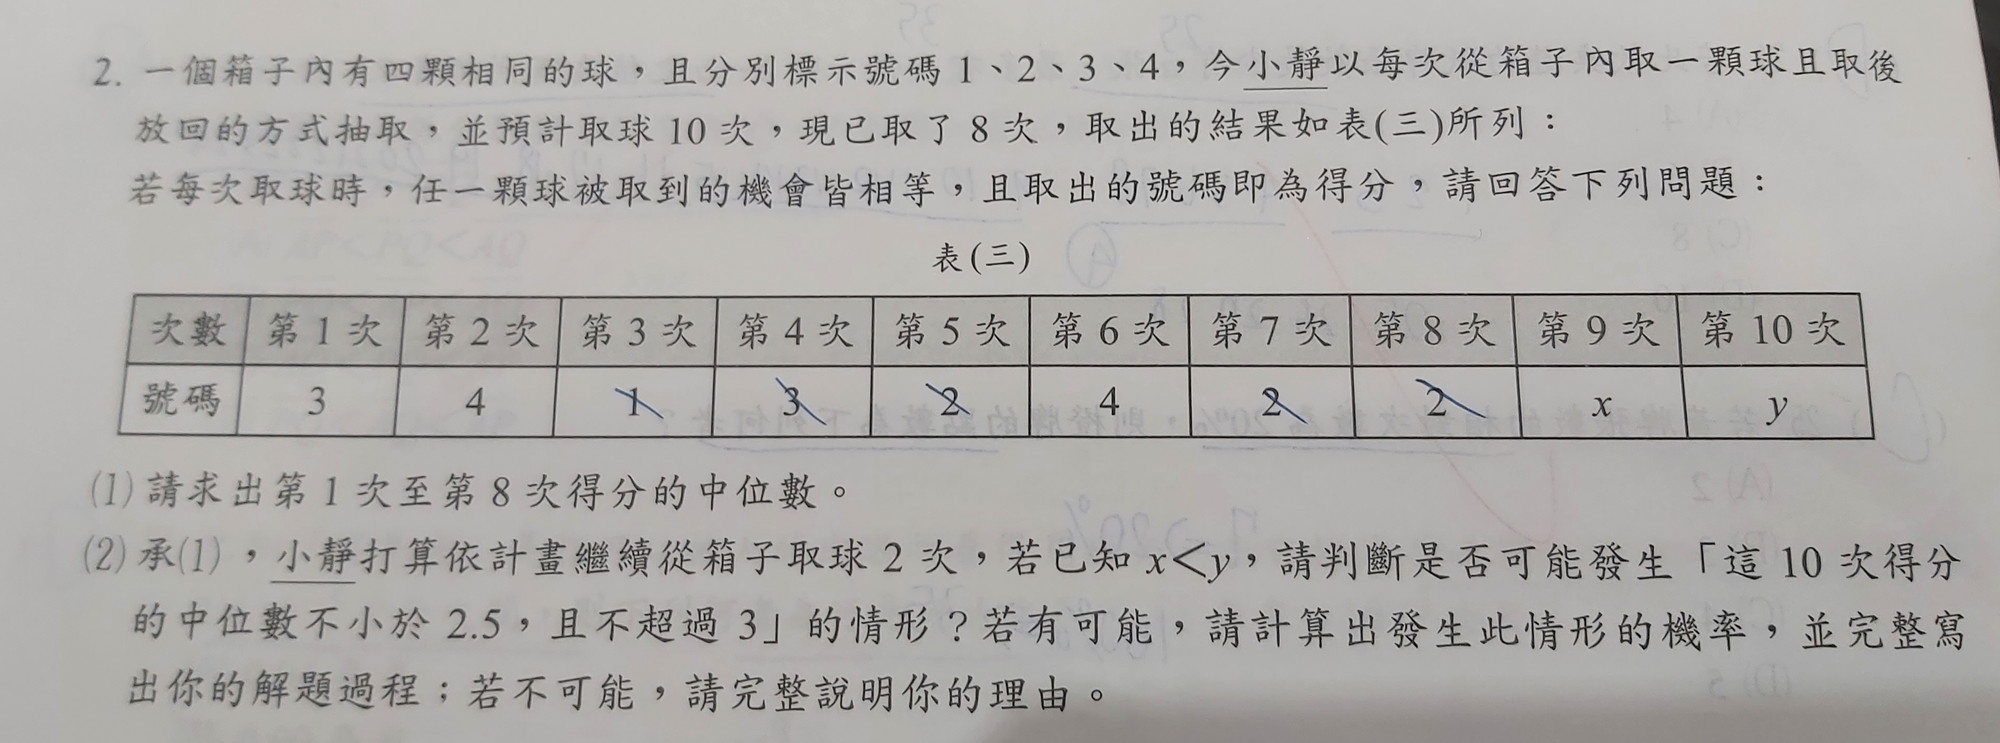 2. 一個箱子內有四顆相同的球，且分別標示號碼 1、2、3、4，今小靜以每次從箱子內取一顆球且取後
放回的方式抽取，並預計取球 10 次，現已取了 8 次，取出的結果如表(三)所列：
若每次取球時，任一顆球被取到的機會皆相等，且取出的號碼即為得分，請回答下列問題：
表(三)
次數 第 1 次 第 2 次 第 3 次 第 4 次 第 5 次 第 6 次 第 7 次 第 8 次 第 9 次 第 10 次
號碼 3 4 1 3 2 4 2 2 x y
(1) 請求出第 1 次至第 8 次得分的中位數。
(2) 承(1)，小靜打算依計畫繼續從箱子取球 2 次，若已知 x<y，請判斷是否可能發生「這 10 次得分
的中位數不小於 2.5，且不超過 3」的情形？若有可能，請計算出發生此情形的機率，並完整寫
出你的解題過程；若不可能，請完整說明你的理由。